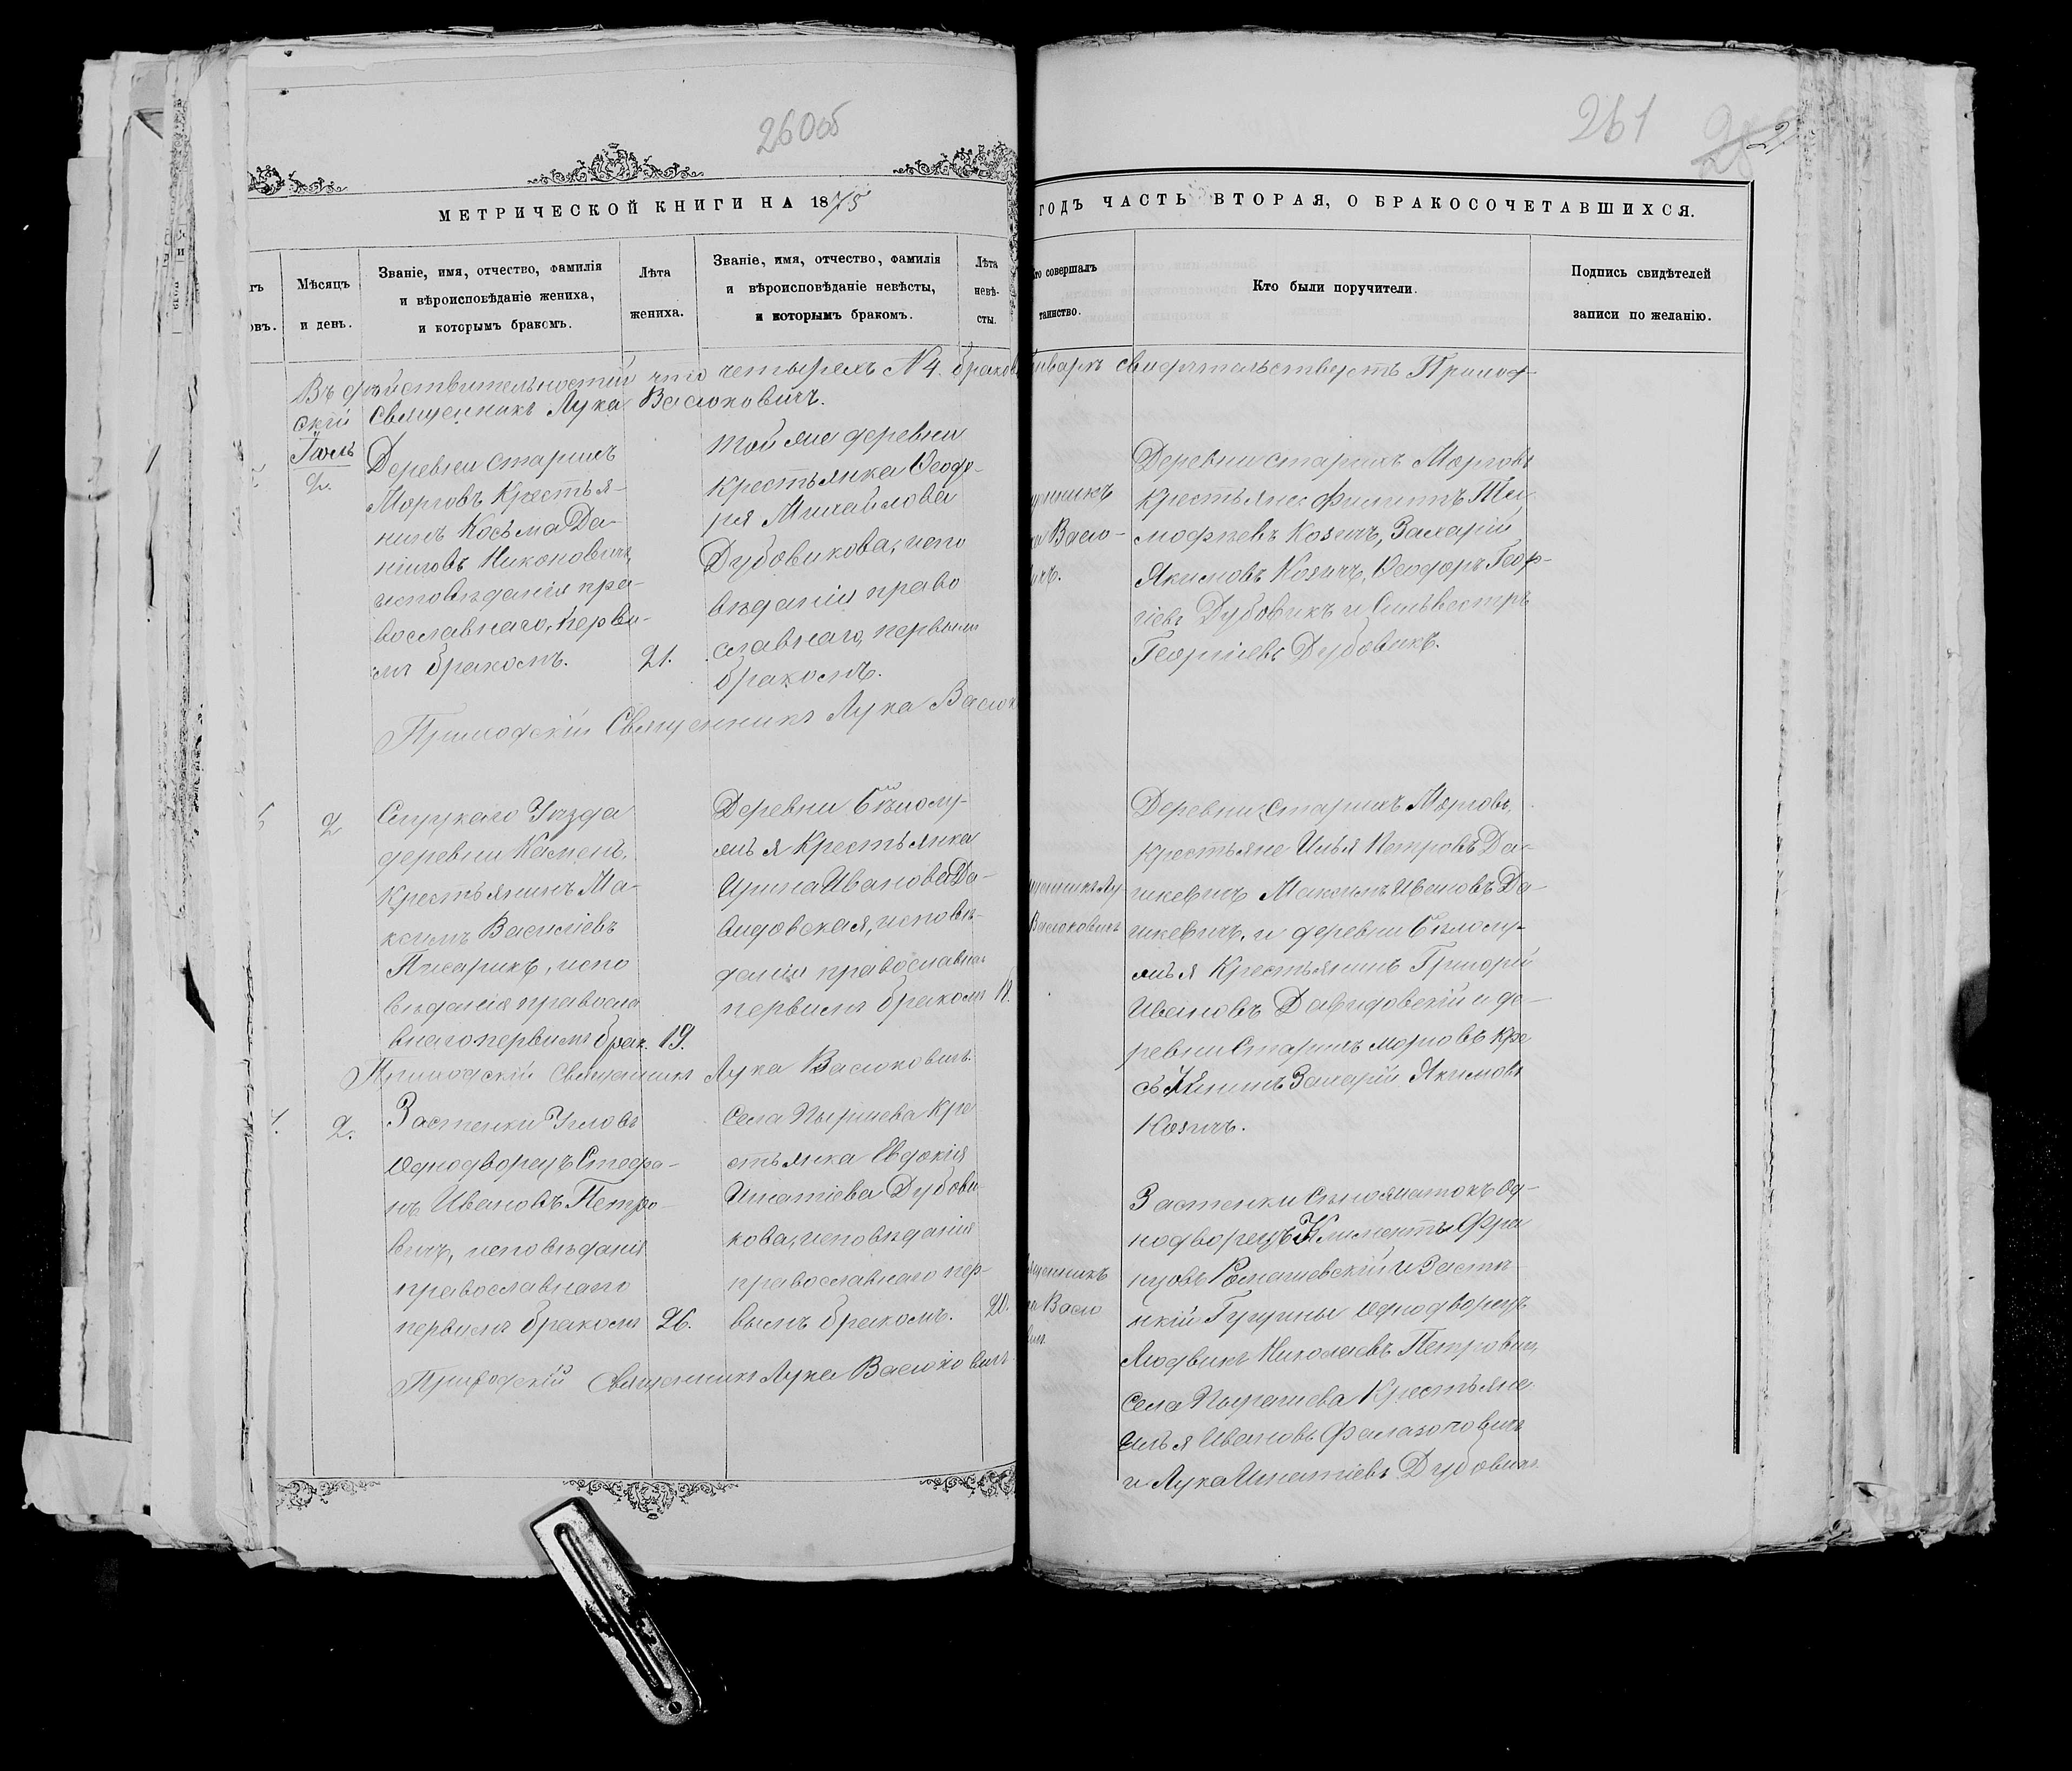 260об
261
МЕТРИЧЕСКОЙ КНИГИ НА 1875
ГОДЪ ЧАСТЬ ВТОРАЯ, О БРАКОСОЧЕТАВШИХСЯ.
Мѣсяцъ
и день.
Званіе, имя, отчество, фамилія
и вѣроисповѣданіе жениха,
и которымъ бракомъ.
Лѣта
жениха.
Званіе, имя, отчество, фамилія
и вѣроисповѣданіе невѣсты,
и которымъ бракомъ.
Лѣта
невѣ-
сты.
совершалъ
таинство.
Кто были поручители.
Подпись свидѣтелей
записи по желанію.
Въ дѣйствительности что четырехъ N 4. браковъ свидѣтельствуетъ Приход-
скій Священникъ Лука Васюковичъ.
2.
Деревни Старихъ
Морговъ Крестья-
нинъ Косьма Да-
ніиловъ Никоновичъ,
исповѣданія пра-
вославнаго, перви-
мъ бракомъ.
21.
той же деревни
крестьянка Ѳеодо-
ра Михайлова
Дубовикова, испо
вѣданія право
славнаго, первымъ
бракомъ.
Деревни Старихъ Морговъ
крестьяне: Филиппъ Ти-
мофѣевъ Козичъ, Захарій
Якимовъ Козичъ, Ѳеодоръ Геор-
гіевъ Дубовикъ и Сильвестръ
Георгіевъ Дубовикъ.
Приходскій Священникъ Лука Васюк
2
Слуцкаго Уѣзда
деревни Камень,
Крестьянинъ Ма-
ксимъ Василіевъ
Писарикъ, испо
вѣданія правосла
внаго первимъ брак.
19.
Деревни Бѣлолу-
жья Крестьянка
Ирина Иванова Да-
видовская, исповѣ-
данія православна
первимъ бракомъ
18.
Деревни Старихъ Морговъ,
крестьяне Илья Петровъ Да-
шкевичъ Максимъ Ивановъ Да-
шкевичъ, и деревни Бѣлолу-
жья Крестьянинъ Григорій
Ивановъ Давидовскій и де-
ревни Старихъ Морговъ кре
стьянинъ Захарій Якимовъ
Козичъ.
Приходскій Священникъ Лука Васюковичъ.
2.
Застенки Угловъ
Однодворецъ Стефа-
нъ Ивановъ Петро-
вичъ, исповѣданія
православнаго
первимъ бракомъ
26.
Села Пырашева Кре
стьянка Евдокія
Игнатіева Дубови-
кова, исповѣданія
православнаго пер-
вымъ бракомъ.
20.
Застенки Сѣножатокъ Од-
нодворецъ Климентъ Фра
нцовъ Ромашевскій и Засте-
нкій Гущины однодворецъ
Людвикъ Николаевъ Петровичъ
Села Пырашева Крестьяне
Илья Ивановъ
и Лука Игнатіевъ Дубовикъ
Приходскій Священникъ Лука Васюковичъ